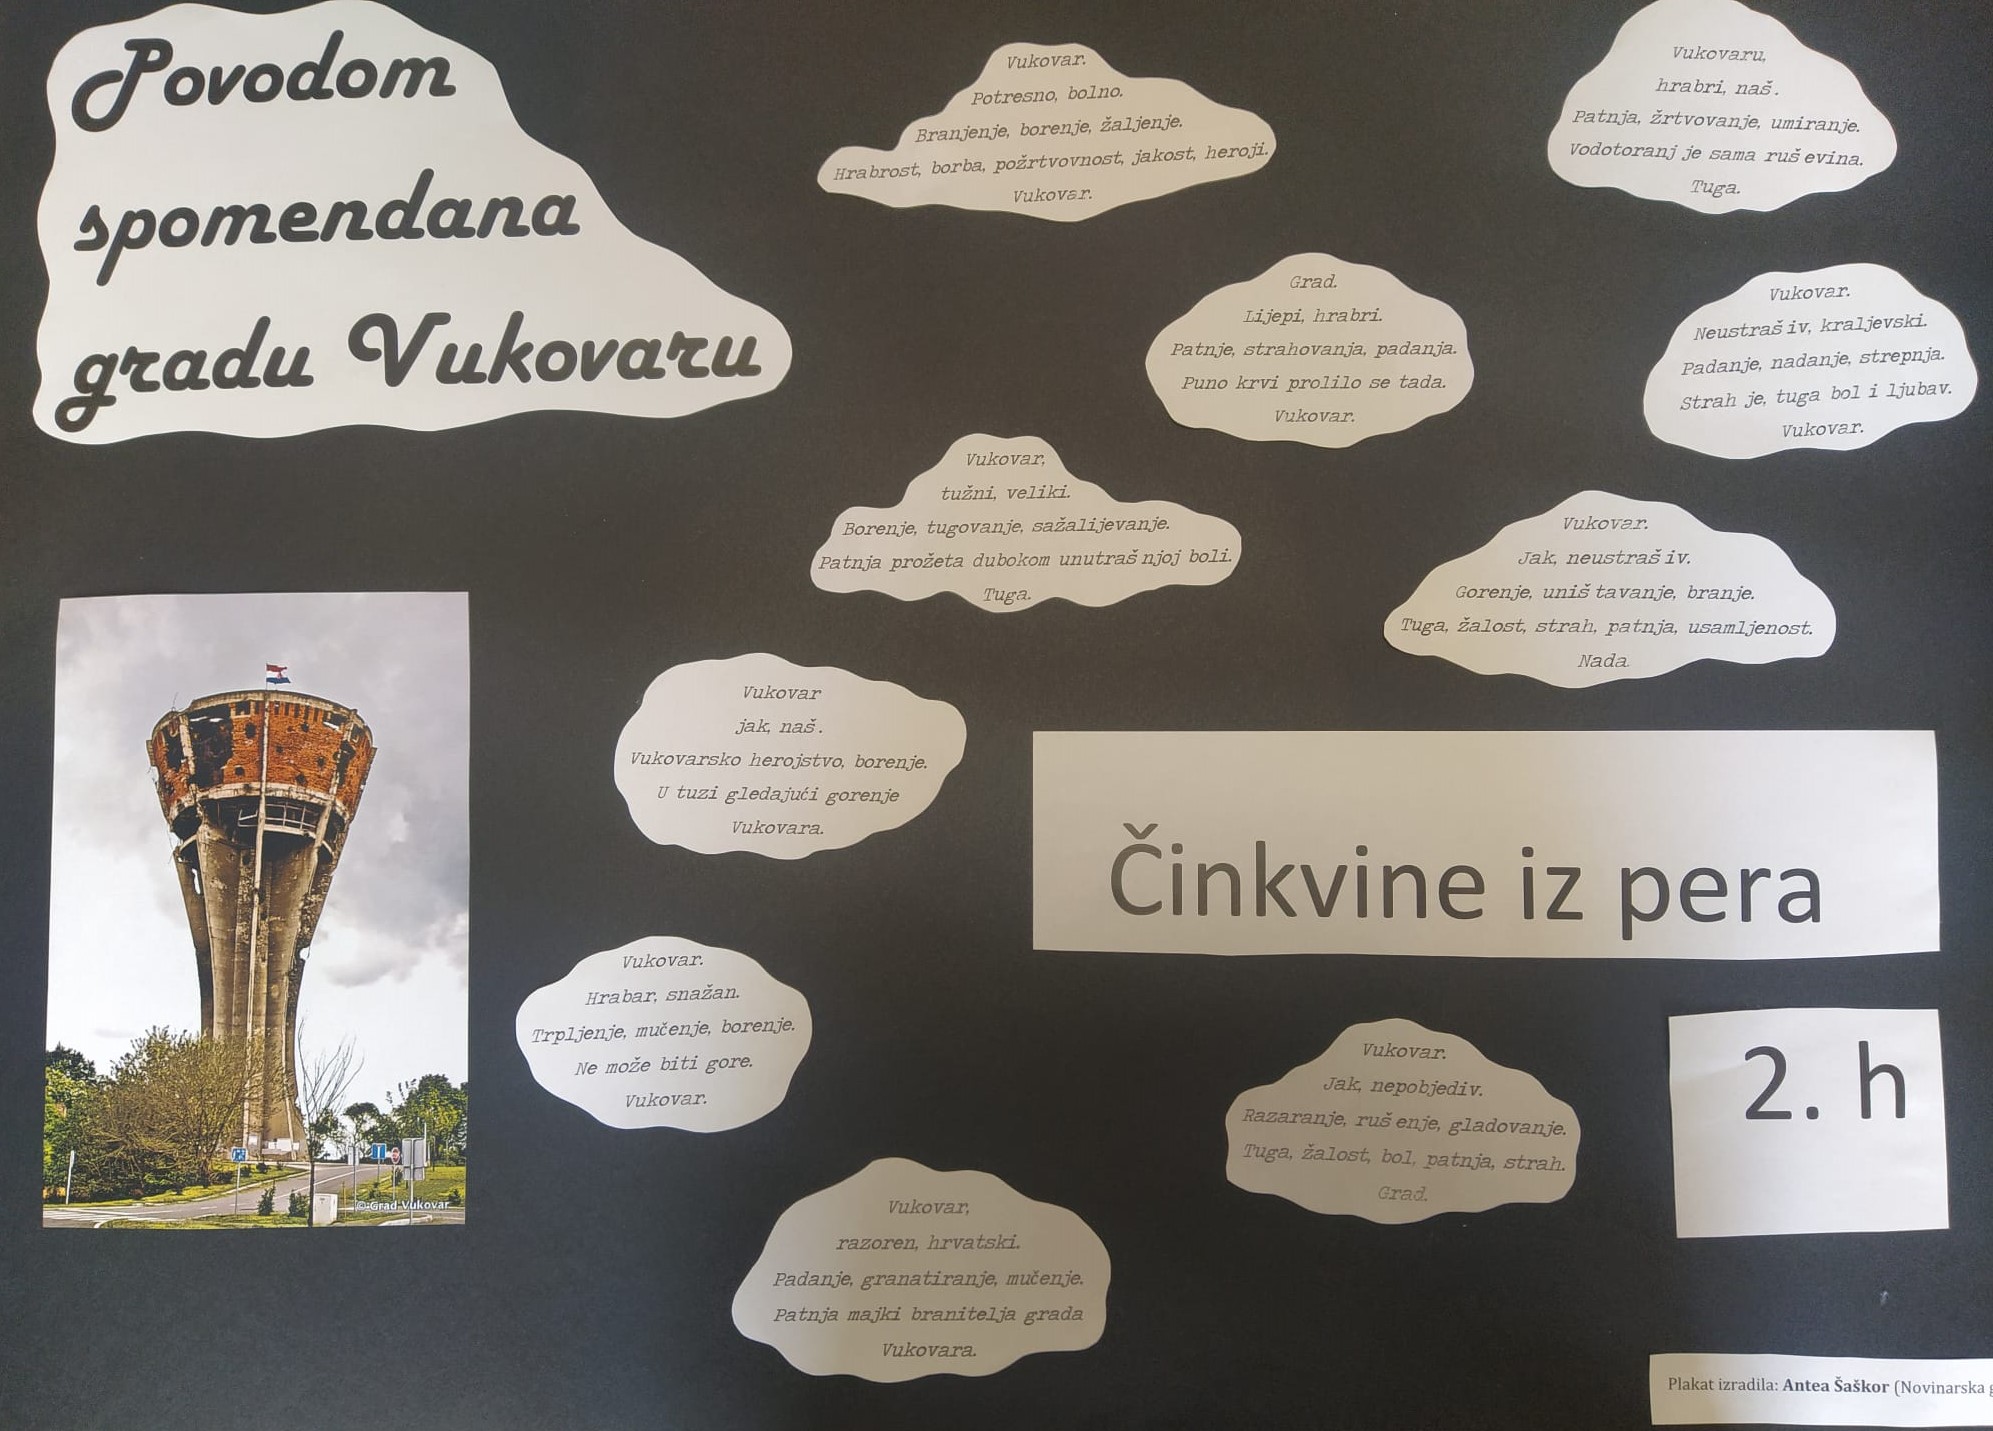 Povodom
spomendana
gradu Vukovaru
Vukovar.
Potresno, bolno.
Branjenje, borenje, žaljenje.
Hrabrost, borba, požrtvovnost, jakost, heroji.
Vukovar.
Vukovaru,
hrabri, naš.
Patnja, žrtvovanje, umiranje.
Vodotoranj je sama ruševina.
Tuga.
Grad.
Lijepi, hrabri.
Patnje, strahovanja, padanja.
Puno krvi prolilo se tada.
Vukovar.
Vukovar.
Neustrašiv, kraljevski.
Padanje, nadanje, strepnja.
Strah je, tuga bol i ljubav.
Vukovar.
Vukovar,
tužni, veliki.
Borenje, tugovanje, sažalijevanje.
Patnja prožeta dubokom unutrašnjoj boli.
Tuga.
Vukovar.
Jak, neustrašiv.
Gorenje, uništavanje, branje.
Tuga, žalost, strah, patnja, usamljenost.
Nada.
Vukovar
jak, naš.
Vukovarsko herojstvo, borenje.
U tuzi gledajući gorenje
Vukovara.
Činkvine iz pera
2. h
Vukovar.
Hrabar, snažan.
Trpljenje, mučenje, borenje.
Ne može biti gore.
Vukovar.
Vukovar.
Jak, nepobjediv.
Razaranje, rušenje, gladovanje.
Tuga, žalost, bol, patnja, strah.
Grad.
Vukovar,
razoren, hrvatski.
Padanje, granatiranje, mučenje.
Patnja majki branitelja grada
Vukovara.
© Grad Vukovar
Plakat izradila: Antea Šaškor (Novinarska